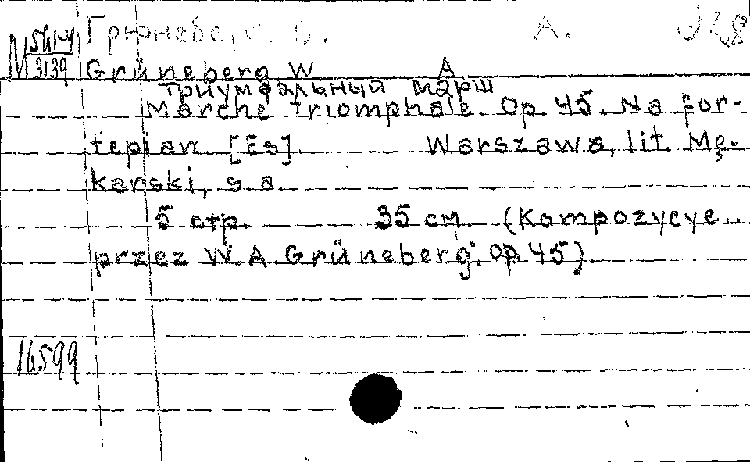 А.
M 3139 Grüneberg W A
Триумфальный марш
Marche triomphale. Op. 45. Na for-
tepian [Es] Warszawa, lit. Mę-
karski, s a
5 стр. 35 см (Kompozycye
przez W. A Grüneberg: op 45)
16599